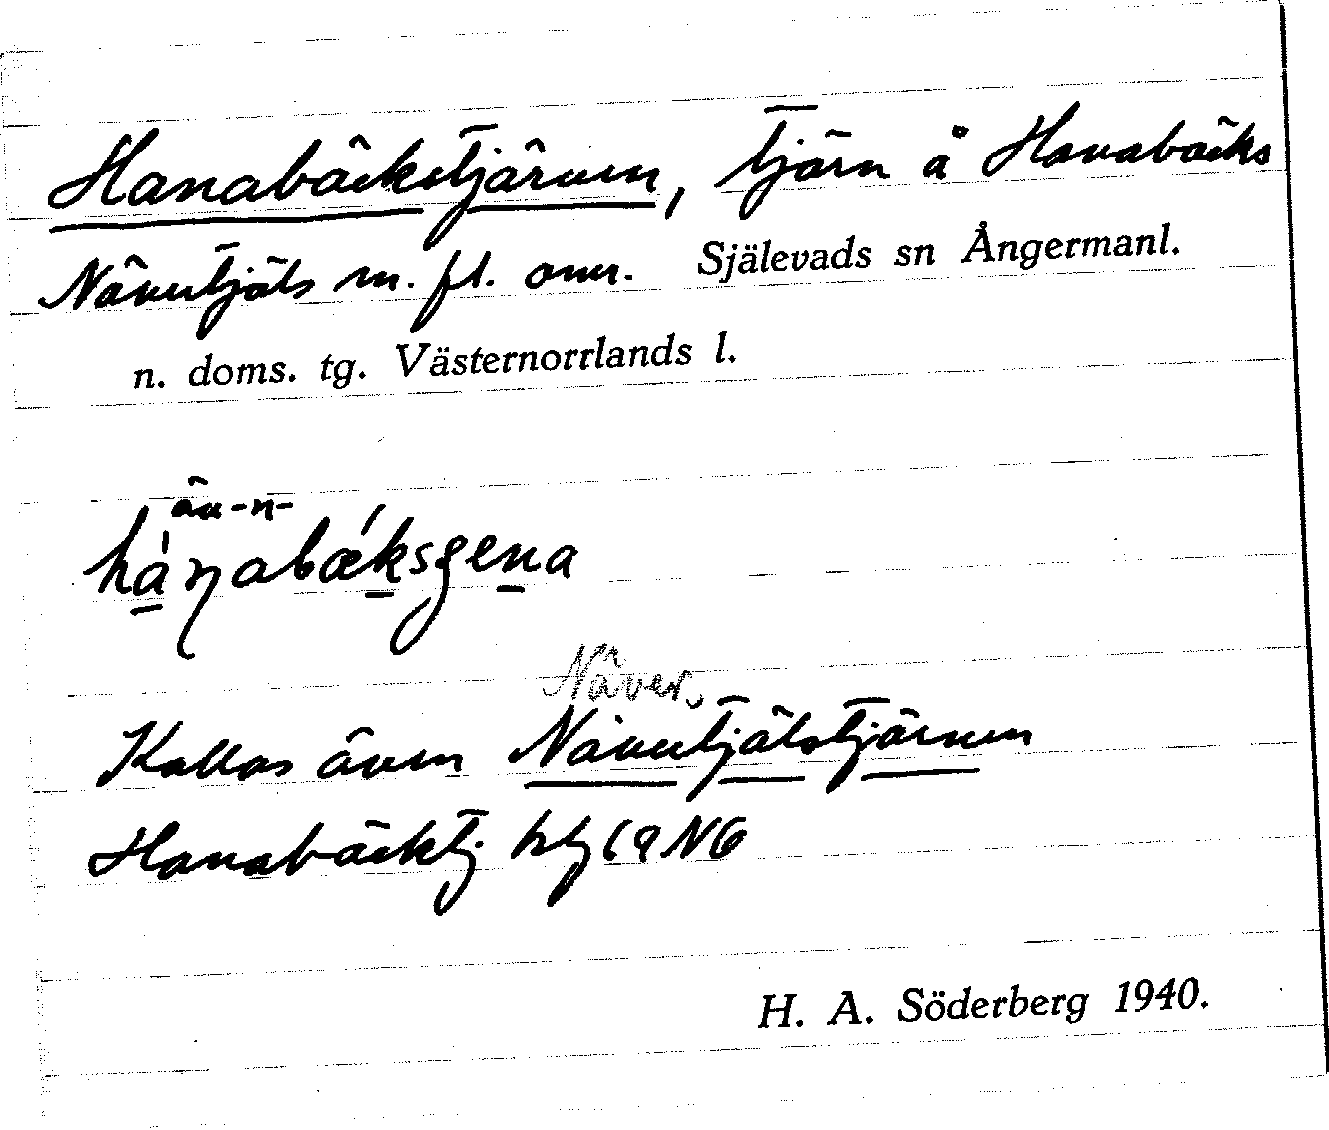 Hanabäckstjärnen, tjärn å Hanabäcks
Nävertjäls m. fl. omr. Själevads sn Ångermanl.
n. doms. tg. Västernorrlands l.
äv -n-
Näver
Kallas även Nävertjälstjärnen
Hanabäcktj
H. A. Söderberg 1940.